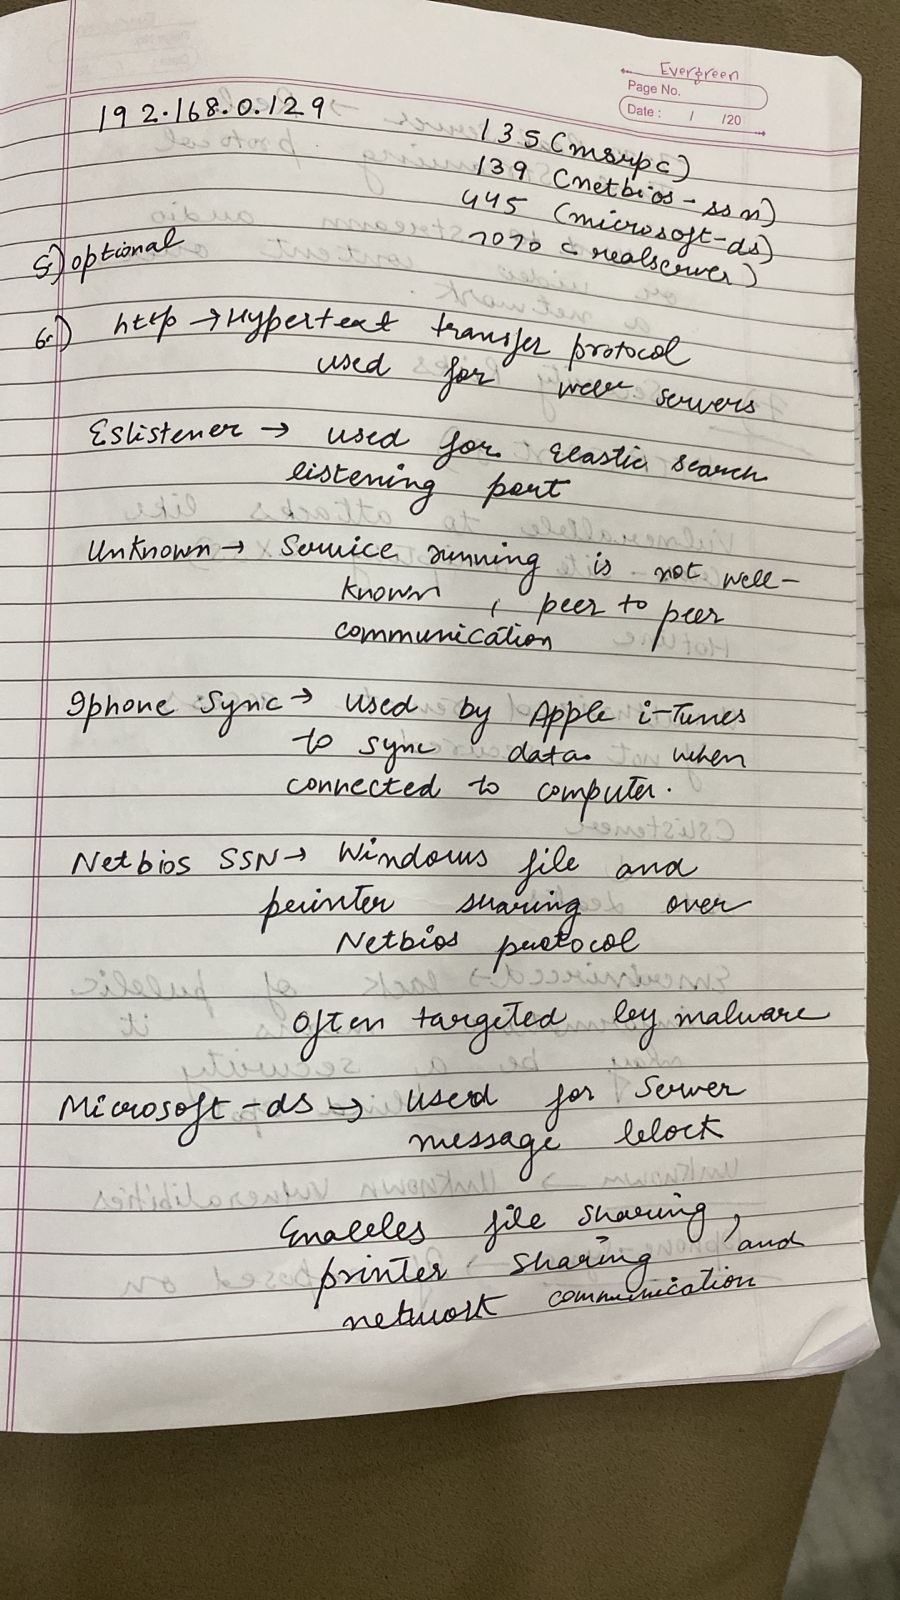 Evergreen
Page No.
Date : / /20
192.168.0.129
135 (msrpc)
139 (netbios-ssn)
445 (microsoft-ds)
7070 (realserver)
5.) optional
6.) http → Hypertext transfer protocol
used for web servers
Eslistener → used for Elastic search
listening port
Unknown → Service running is not well-
known, peer to peer
communication
Iphone Sync → used by Apple i-Tunes
to sync data when
connected to computer.
Netbios SSN → Windows file and
printer sharing over
Netbios protocol
Often targeted by malware
Microsoft-ds → used for Server
message block
Enables file sharing,
printer sharing, and
network communication